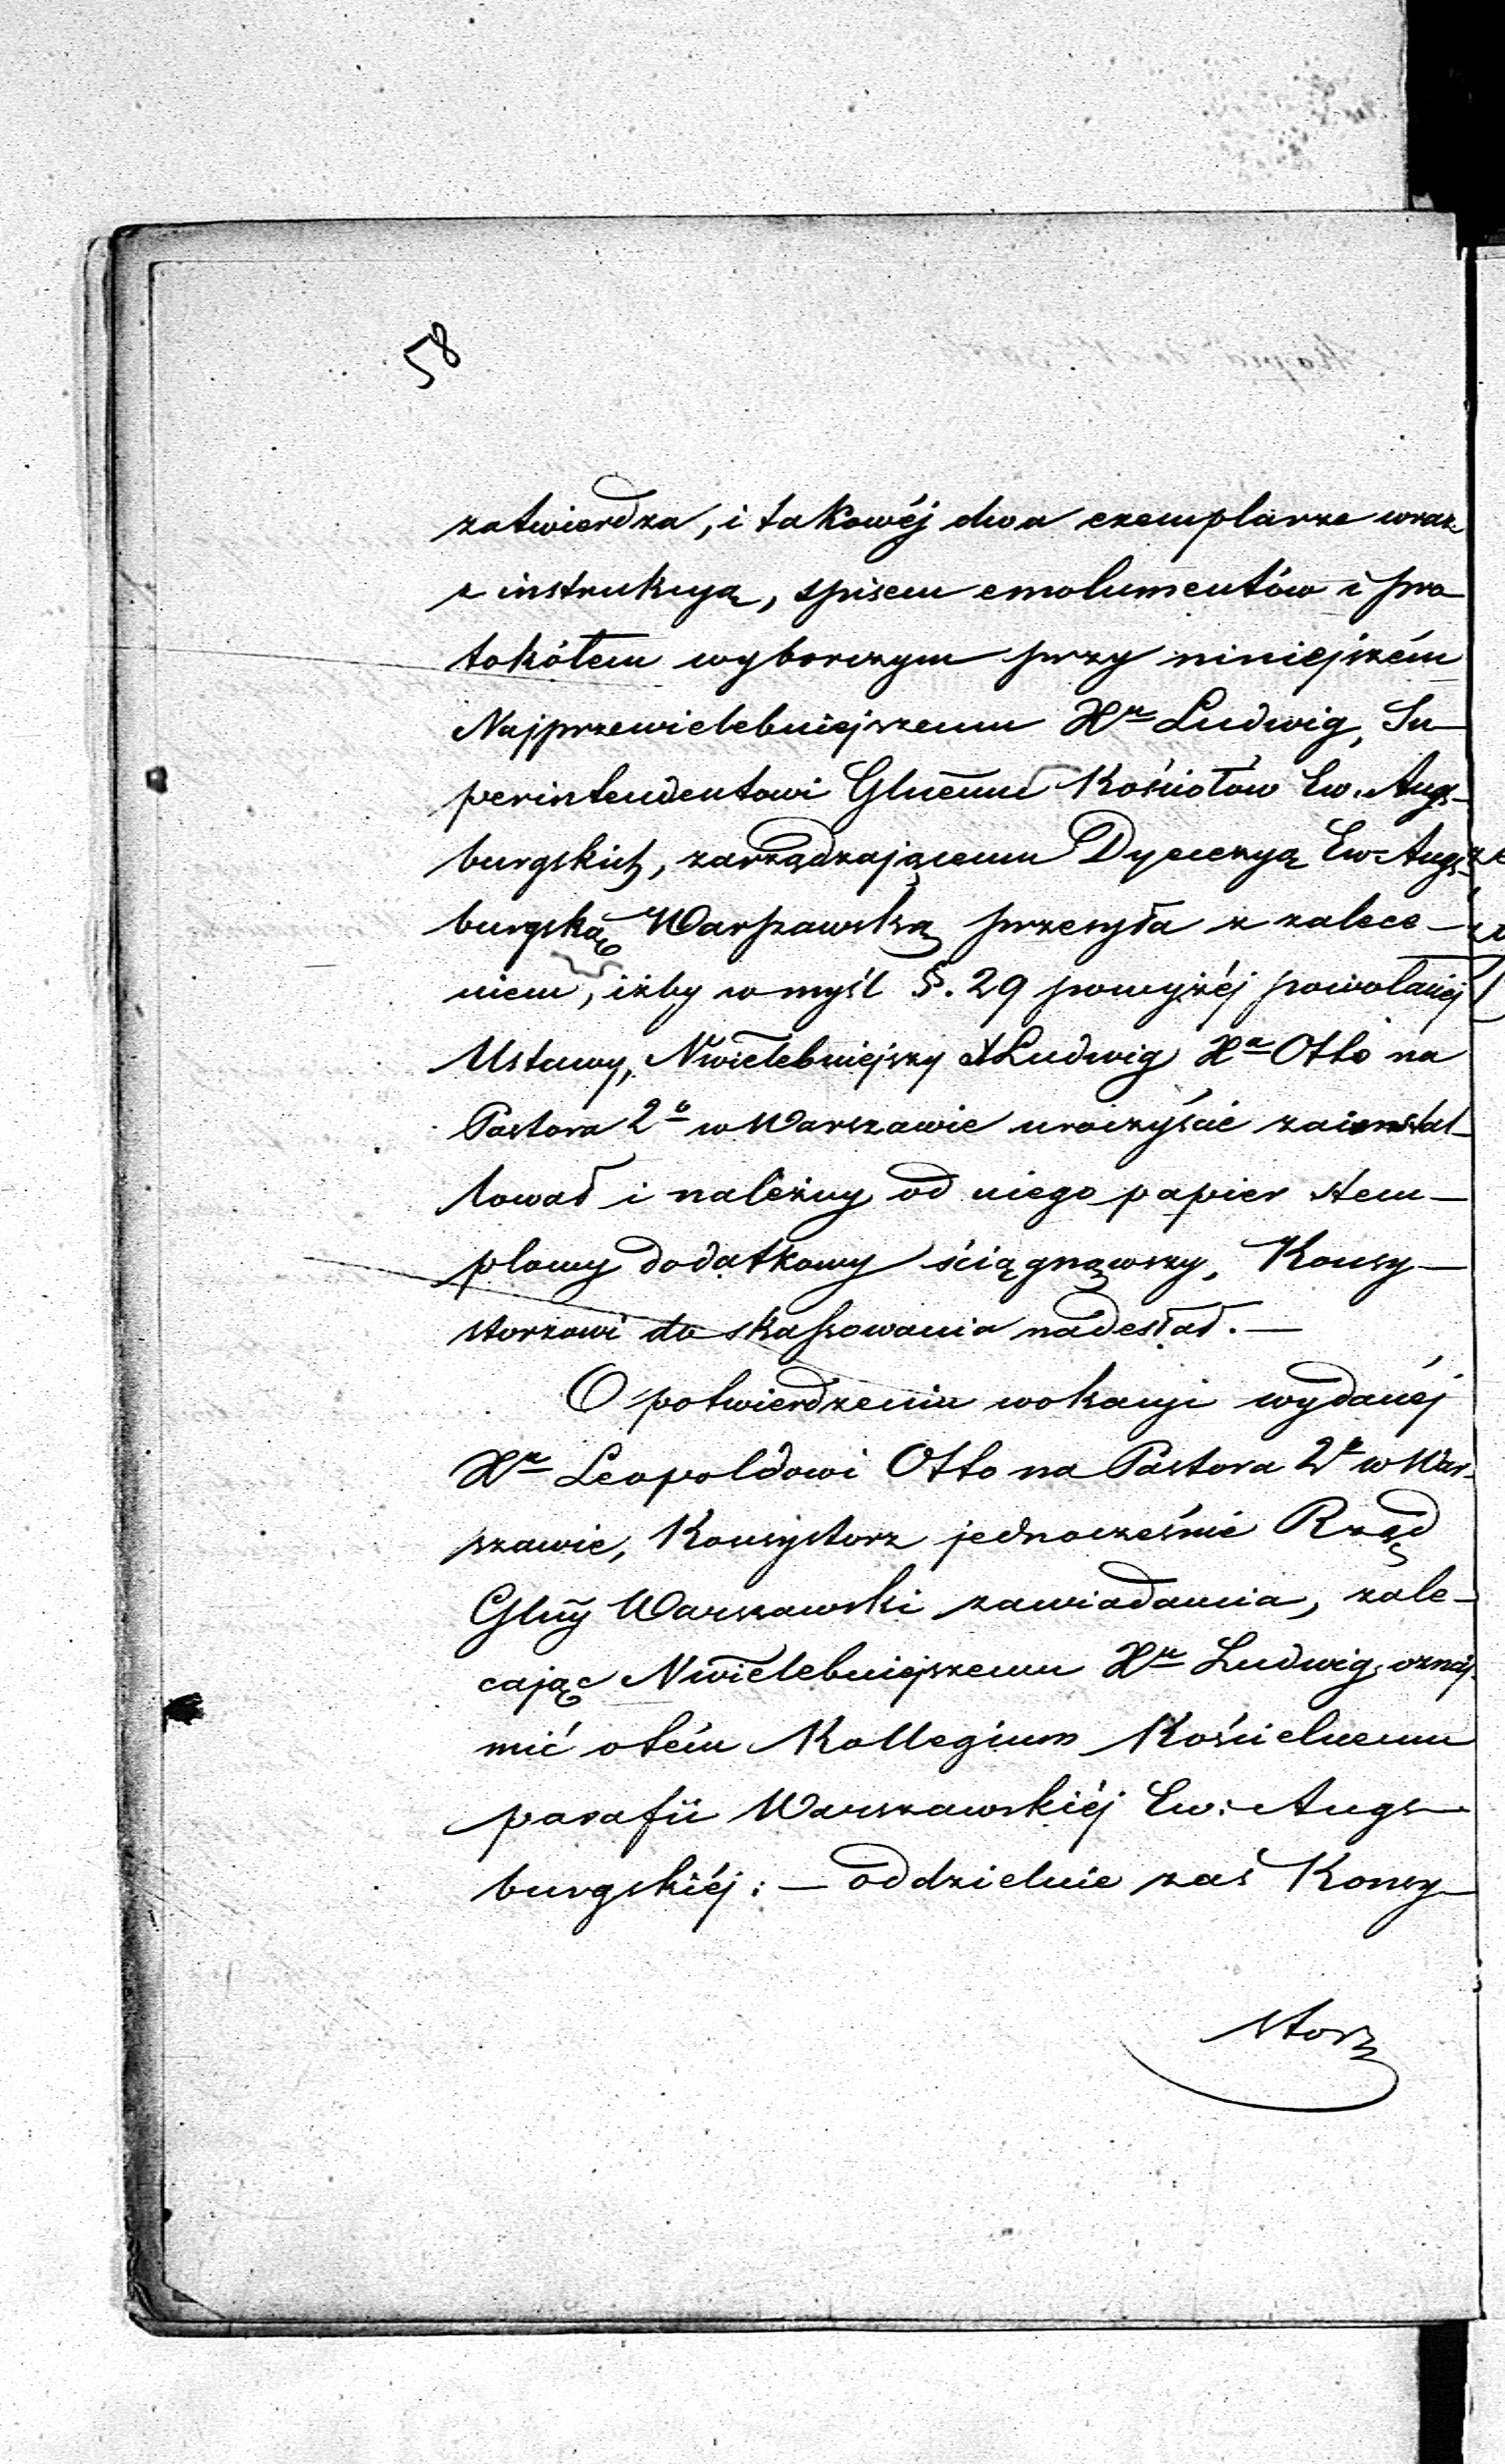 58
zatwierdza, i takowéj dwa exemplarze wraz
z instrukcyą, spisem emolumentów i pro
tokółem wyborczym przy niniejszém
Najprzewielebniejszemu Xu Ludwig, Su-
perintendentowi Glnemu Kościołów Ew. Augs-
burgskich, zarządzającemu Dyecezyą Ew-Augs-
burgską Warszawską przesyła z zalece-
niem, iżby w myśl §. 29 powyżéj powołanéj
Ustawy, Nwielebniejszy X Ludwig Xa Otto na
Pastora 2o w Warszawie uroczyście zainstal-
lował i należny od niego papier stem-
plowy dodatkowy ściągnąwszy, Konsy-
storzowi do skassowania nadesłał. —
O potwierdzeniu wokacyi wydanéj
Xu Leopoldowi Otto na Pastora 2o w War-
szawie, Konsystorz jednocześnie Rząd
Glny Warszawski zawiadamia, zale-
cając Nwielebniejszemu Xu Ludwig, oznaj-
mić o tém Kollegium Kościelnemu
parafii Warszawskiéj Ew: Augs-
burgskiéj: — oddzielnie zaś Konsy-
storz